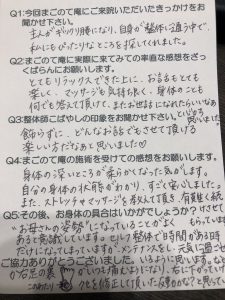 Q1:今回まごのて庵にご来訪いただいたきっかけをお
聞かせ下さい。
主人がギックリ腰になり、自身が整体に通う中で、
私にもぴったりなところを探してくれました。
Q2:まごのて庵に実際に来てみての率直な感想をざっ
くばらんにお願いします。
とてもリラックスできた上に、お話もとても
楽しく、マッサージも気持ち良く、身体のことも
何でも答えて頂けて、またお世話になれたらいいなあ
と
Q3:整体師こばやしの印象をお聞かせ下さい。
飾らずに、どんなお話でもさせて頂ける
楽しい方だなあと思いました♡
Q4:まごのて庵の施術を受けての感想をお願いします。
身体の深いところが柔らかくなった気がします。
自分の身体の状態がわかり、すごく安心しました。
また、ストレッチやマッサージも教えて頂き、有意義に
Q5:その後、お身体の具合はいかがでしょうか?
"お母さんの姿勢"になっていることがよく
あると意識しています。セルフ整体で時間がある時
だけになってしまってますが、メンテナンスをし、元気に過ごせ
ご協力ありがとうございました。いるように思います。
かる足の裏が、いつも痛むようになり、右に下がっていけ